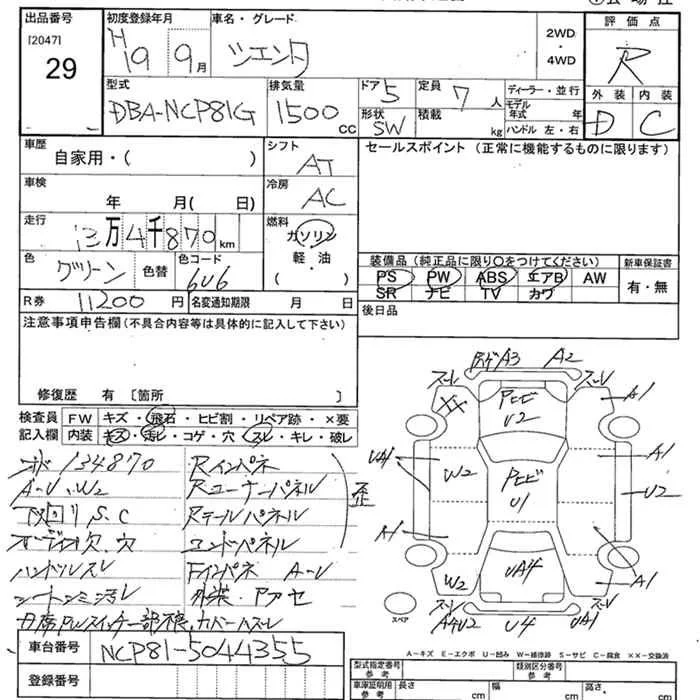 出品番号
[2047]
29
初度登録年月
H19 9月
車名・グレード
シエンタ
2WD
・
4WD
評価点
R
外装 内装
D C
型式
DBA-NCP81G
排気量
1500 CC
ドア 5
形状 SW
定員 7人
積載 kg
ディーラー・並行
モデル年式 年
ハンドル 左・右
車歴
自家用・( )
シフト
AT
セールスポイント(正常に機能するものに限ります)
車検
年 月( 日)
冷房
AC
走行
13万4千870km
燃料
ガソリン
軽・油
( )
色
グリーン
色替
色コード
6U6
装備品(純正品に限り○をつけてください)
PS PW ABS エアB AW
SR ナビ TV カワ
新車保証書
有・無
R券 11200円
名変通知期限 月 日
後日品
注意事項申告欄(不具合内容等は具体的に記入して下さい)
修復歴 有〔箇所 〕
検査員記入欄
FW キズ・飛石・ヒビ割・リペア跡・×要
内装 キズ・汚レ・コゲ・穴・スレ・キレ・破レ
134870
A-U、W2
下回りS.C
オーディオ欠、穴
ハンドルスレ
Rインパネ
Rコーナーパネル
Rテールパネル
エンドパネル
Fインパネ A-U
歪
A3 A2
XX
U2
A1
UA1
W2
U1
A1
U2
A1
W2
UA4
A1
U4
UA1
スペア
A-キズ E-エクボ U-凹み W-補修跡 S-サビ C-腐食 ××-交換済
車台番号
NCP81-5044355
登録番号
型式指定番号
参考
類別区分番号
参考
車庫証明用
参考
長さ cm
幅 cm
高さ cm